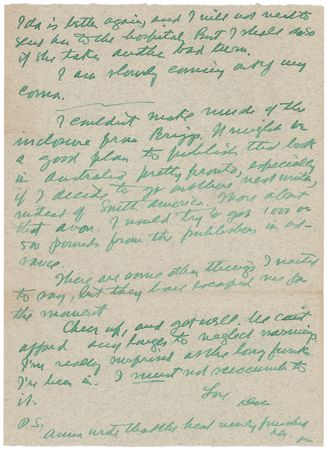 Ida is better again, and I will not need to
send her to the hospital. But I shall do so
if she takes another bad turn.
I am slowly coming out of my
coma.
I couldn't make much of the
inclosure from Briggs. It might be
a good plan to publish this book
in Australia pretty pronto, especially
if I decide to go out there next winter,
instead of South America. More about
that anon. I would try to get 1000 or
500 pounds from the publishers in ad-
vance.
There are some other things I wanted
to say, but they have escaped me for
the moment.
Cheer up, and get well. We can't
afford any longer to neglect warnings.
I'm really surprised at the long funk
I'm been in. I must not succumb to
it.
Love
P.S.
wrote that the heat nearly finished